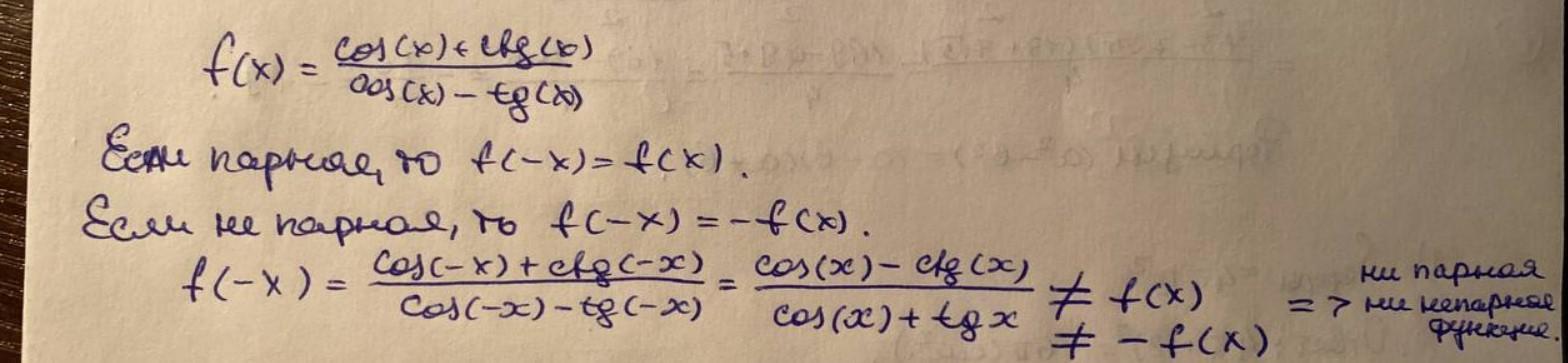 f(x) = (cos(x) + ctg(x)) / (cos(x) - tg(x))
Если парная, то f(-x) = f(x).
Если не парная, то f(-x) = -f(x).
f(-x) = (cos(-x) + ctg(-x)) / (cos(-x) - tg(-x)) = (cos(x) - ctg(x)) / (cos(x) + tg x) ≠ f(x)
≠ -f(x)
=> ни парная
ни непарная
функция.